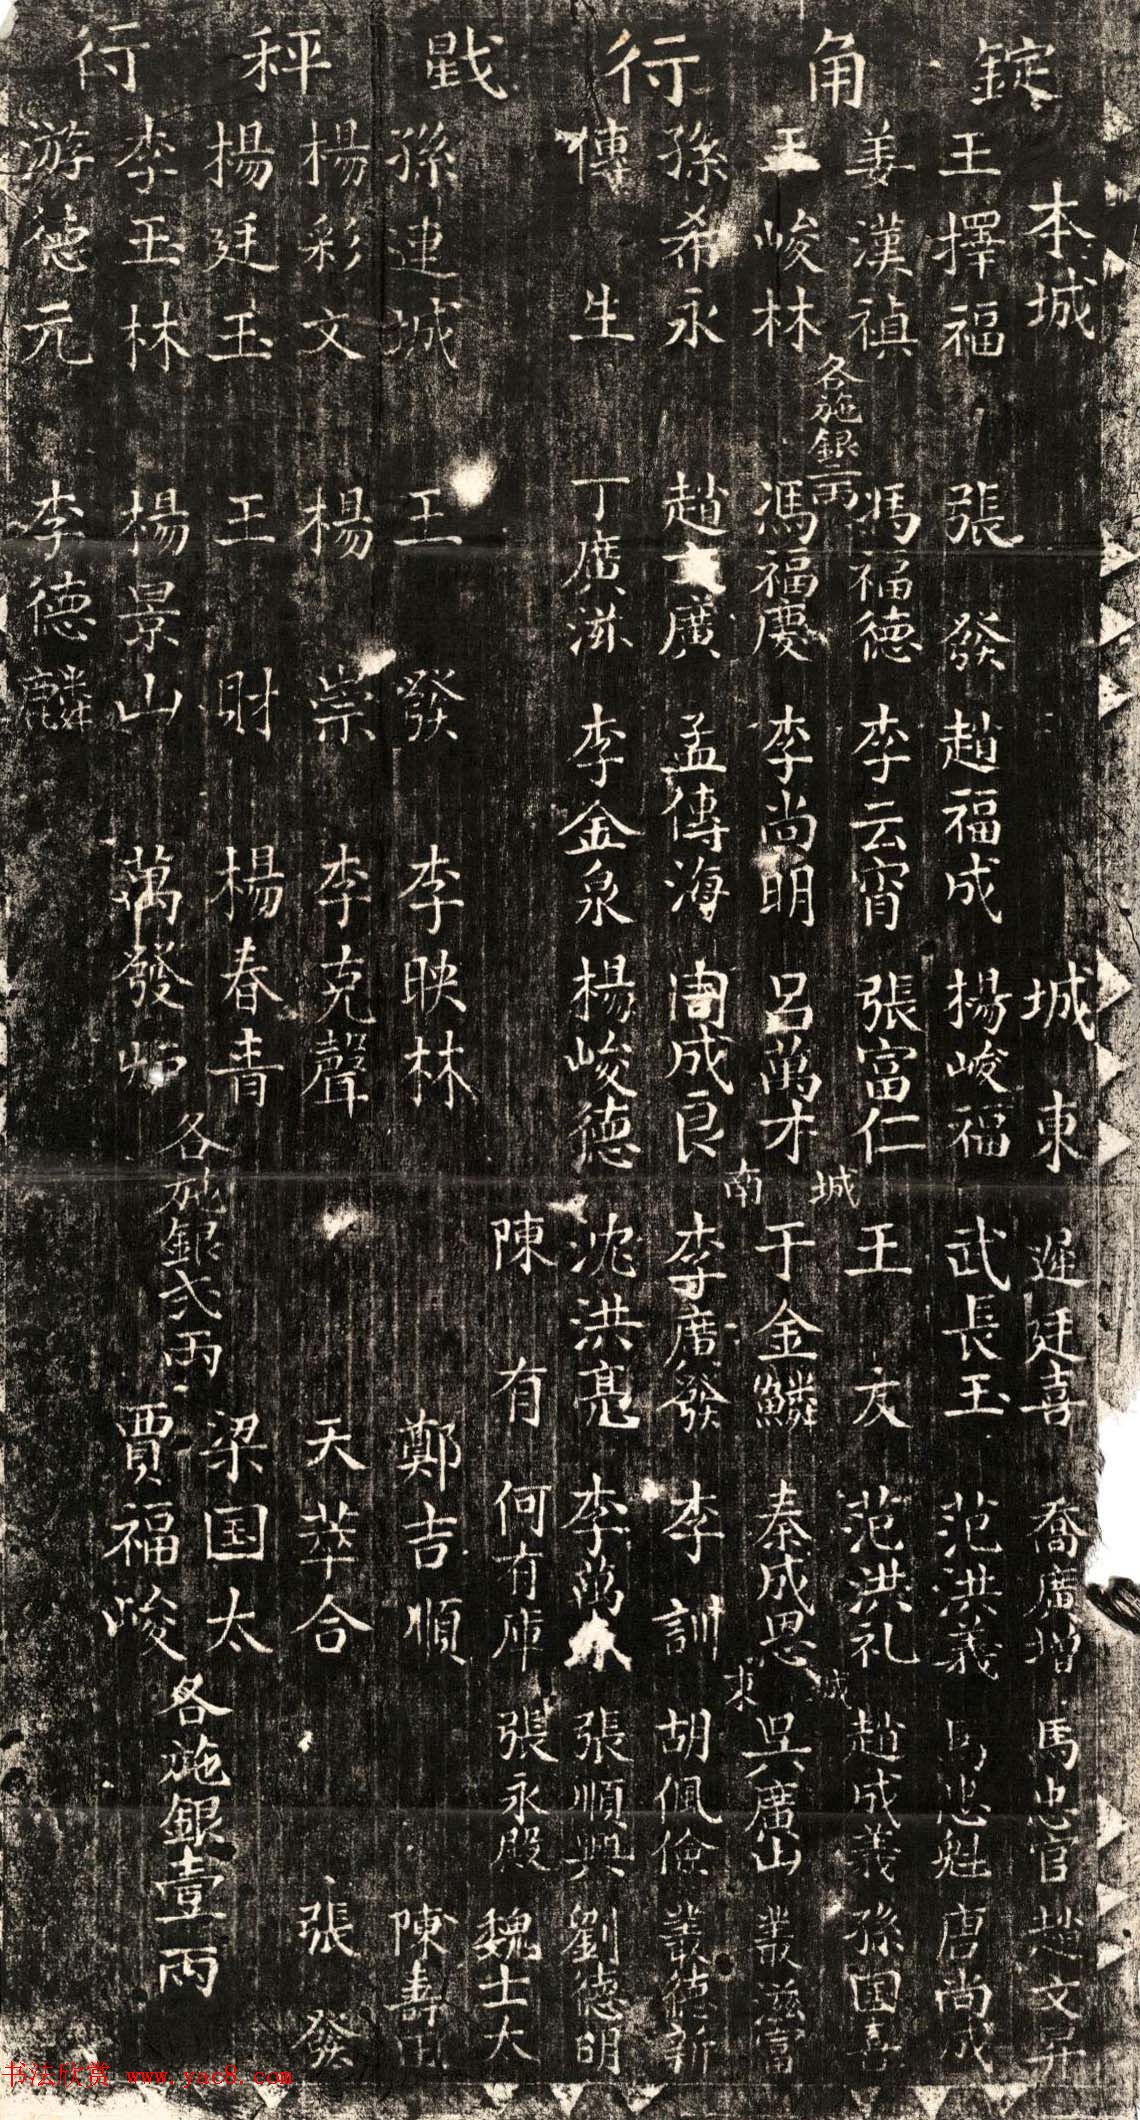 錠角行戥秤行
本城
城東
遲廷喜 喬廣增 馬忠官 趙文昇
王擇福 張發 趙福成 楊峻福 武長玉 范洪義 馬忠魁 唐尚成
姜漢禎 馮福德 李云宵 張富仁 王友 范洪礼 趙成義 孫国喜
各施銀二兩
城南
城東
王峻林 馮福慶 李尚明 呂萬才 于金鱗 秦成恩 吳廣山 叢滋富
孫希永 趙廣 孟傳海 周成良 李廣發 李訓 胡佩儉 叢德新
傅生 丁廣滋 李金泉 楊峻德 沈洪亮 李萬 張順興 劉德明
陳有 何有庫 張永殿 魏士大
孫連城 王發 李映林 鄭吉順 陳壽
楊彩文 楊崇 李克聲 天萃合 張發
楊廷玉 王財 楊春青 梁国太
各施銀弍兩
各施銀壹兩
李玉林 楊景山 萬發炉 賈福峻
游德元 李德麟
书法欣赏 www.yac8.com